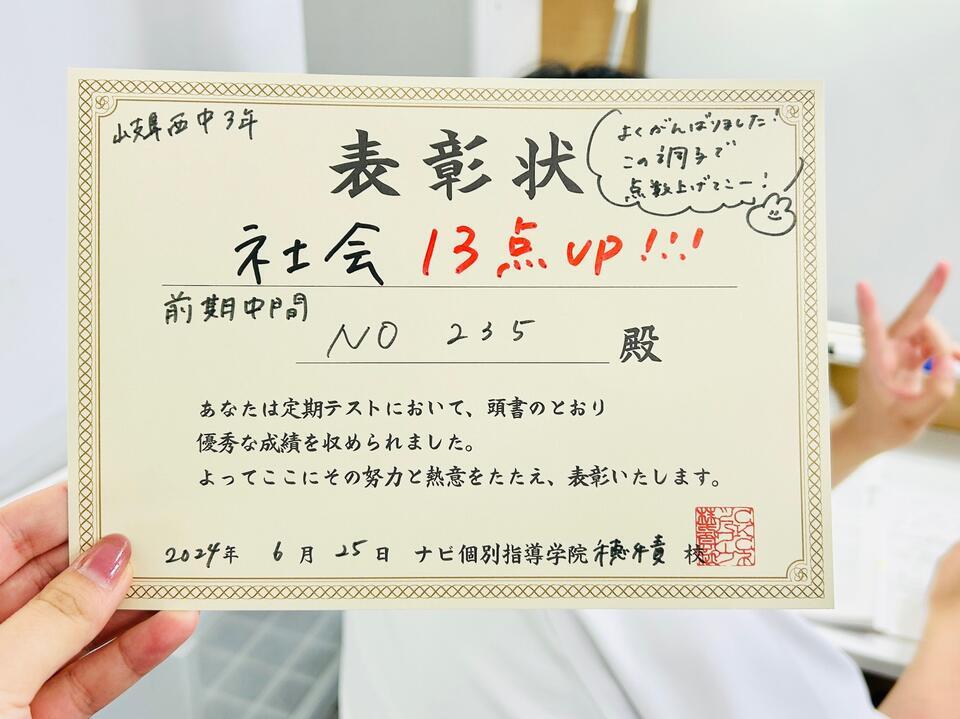 岐阜西中3年
表彰状
よくがんばりました!
この調子で
点数上げてこー!
社会 13点up!!!
前期中間
NO 235 殿
あなたは定期テストにおいて、頭書のとおり
優秀な成績を収められました。
よってここにその努力と熱意をたたえ、表彰いたします。
2024年 6月 25日 ナビ個別指導学院 穂積 校